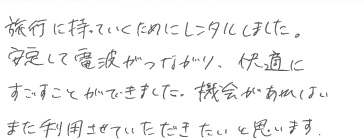 旅行に持っていくためにレンタルしました。
安定して電波がつながり、快適に
すごすことができました。機会があればい
また利用させていただきたいと思います.